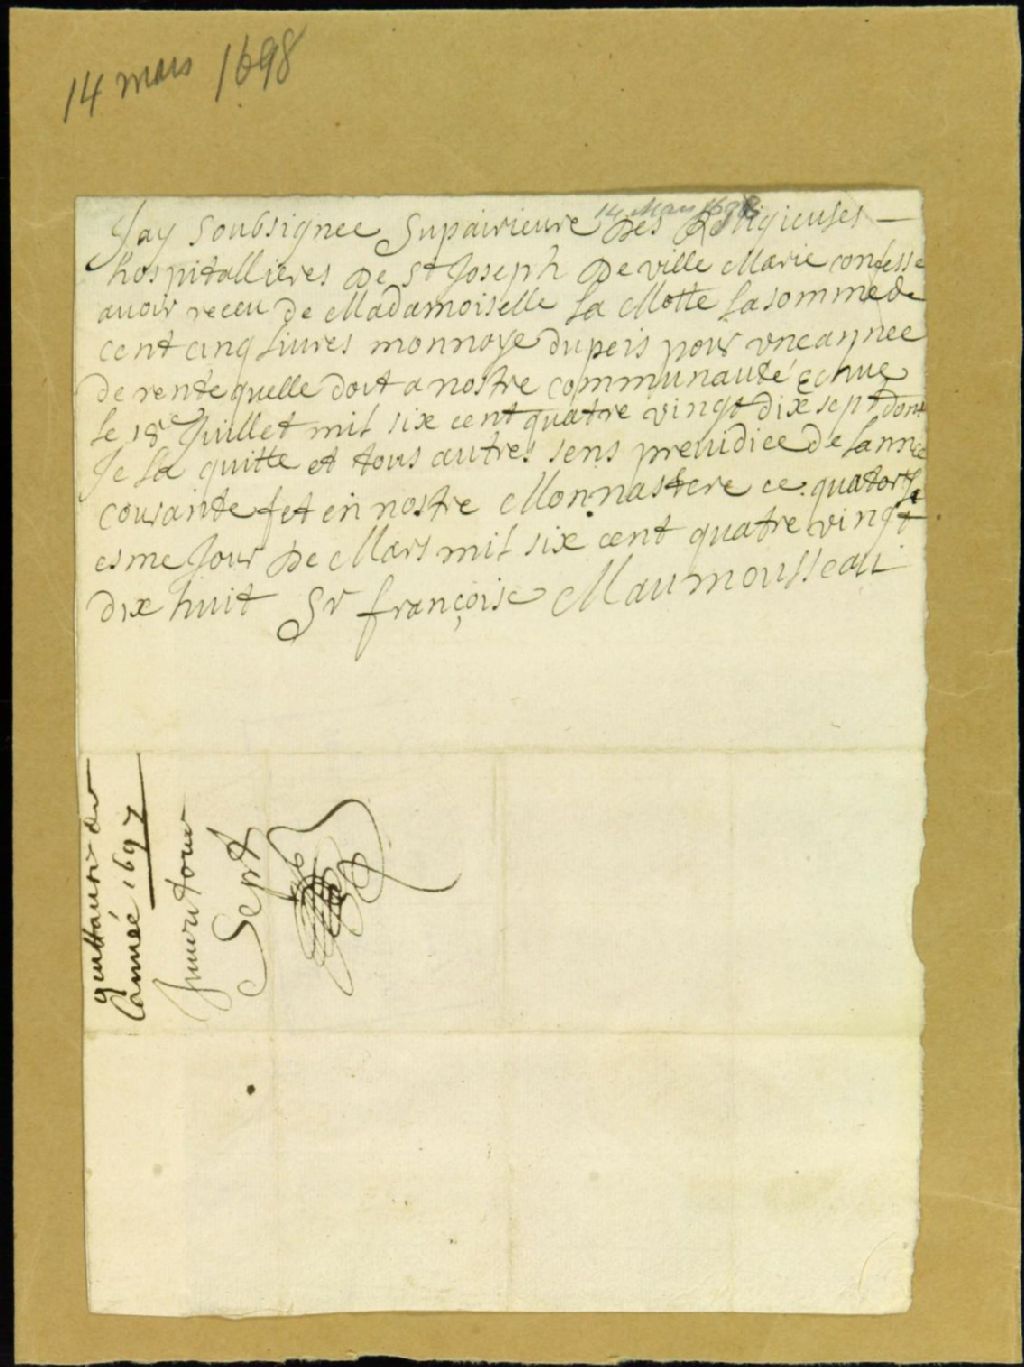 14 mars 1698
14 Mars 1698
Jay soubsignee Supairieure Des Religieuses
hospitallieres De St Joseph De ville Marie confesse
avoir receu De Madamoiselle La Motte La somme de
cent cinq Livres monnoye du peis pour vne annee
De rente quelle doit a nostre communauté Echue
Le 18e Juillet mil six cent quatre vingt dix sept dont
Je La quitte et tous autres sens preiudice de Lannee
courante fet en nostre Monnastere ce quatorzi
esme Jour De Mars mil six cent quatre vingt
dix huit Sr françoise Maumousseau
quittance de
Lannée 1697
Sept